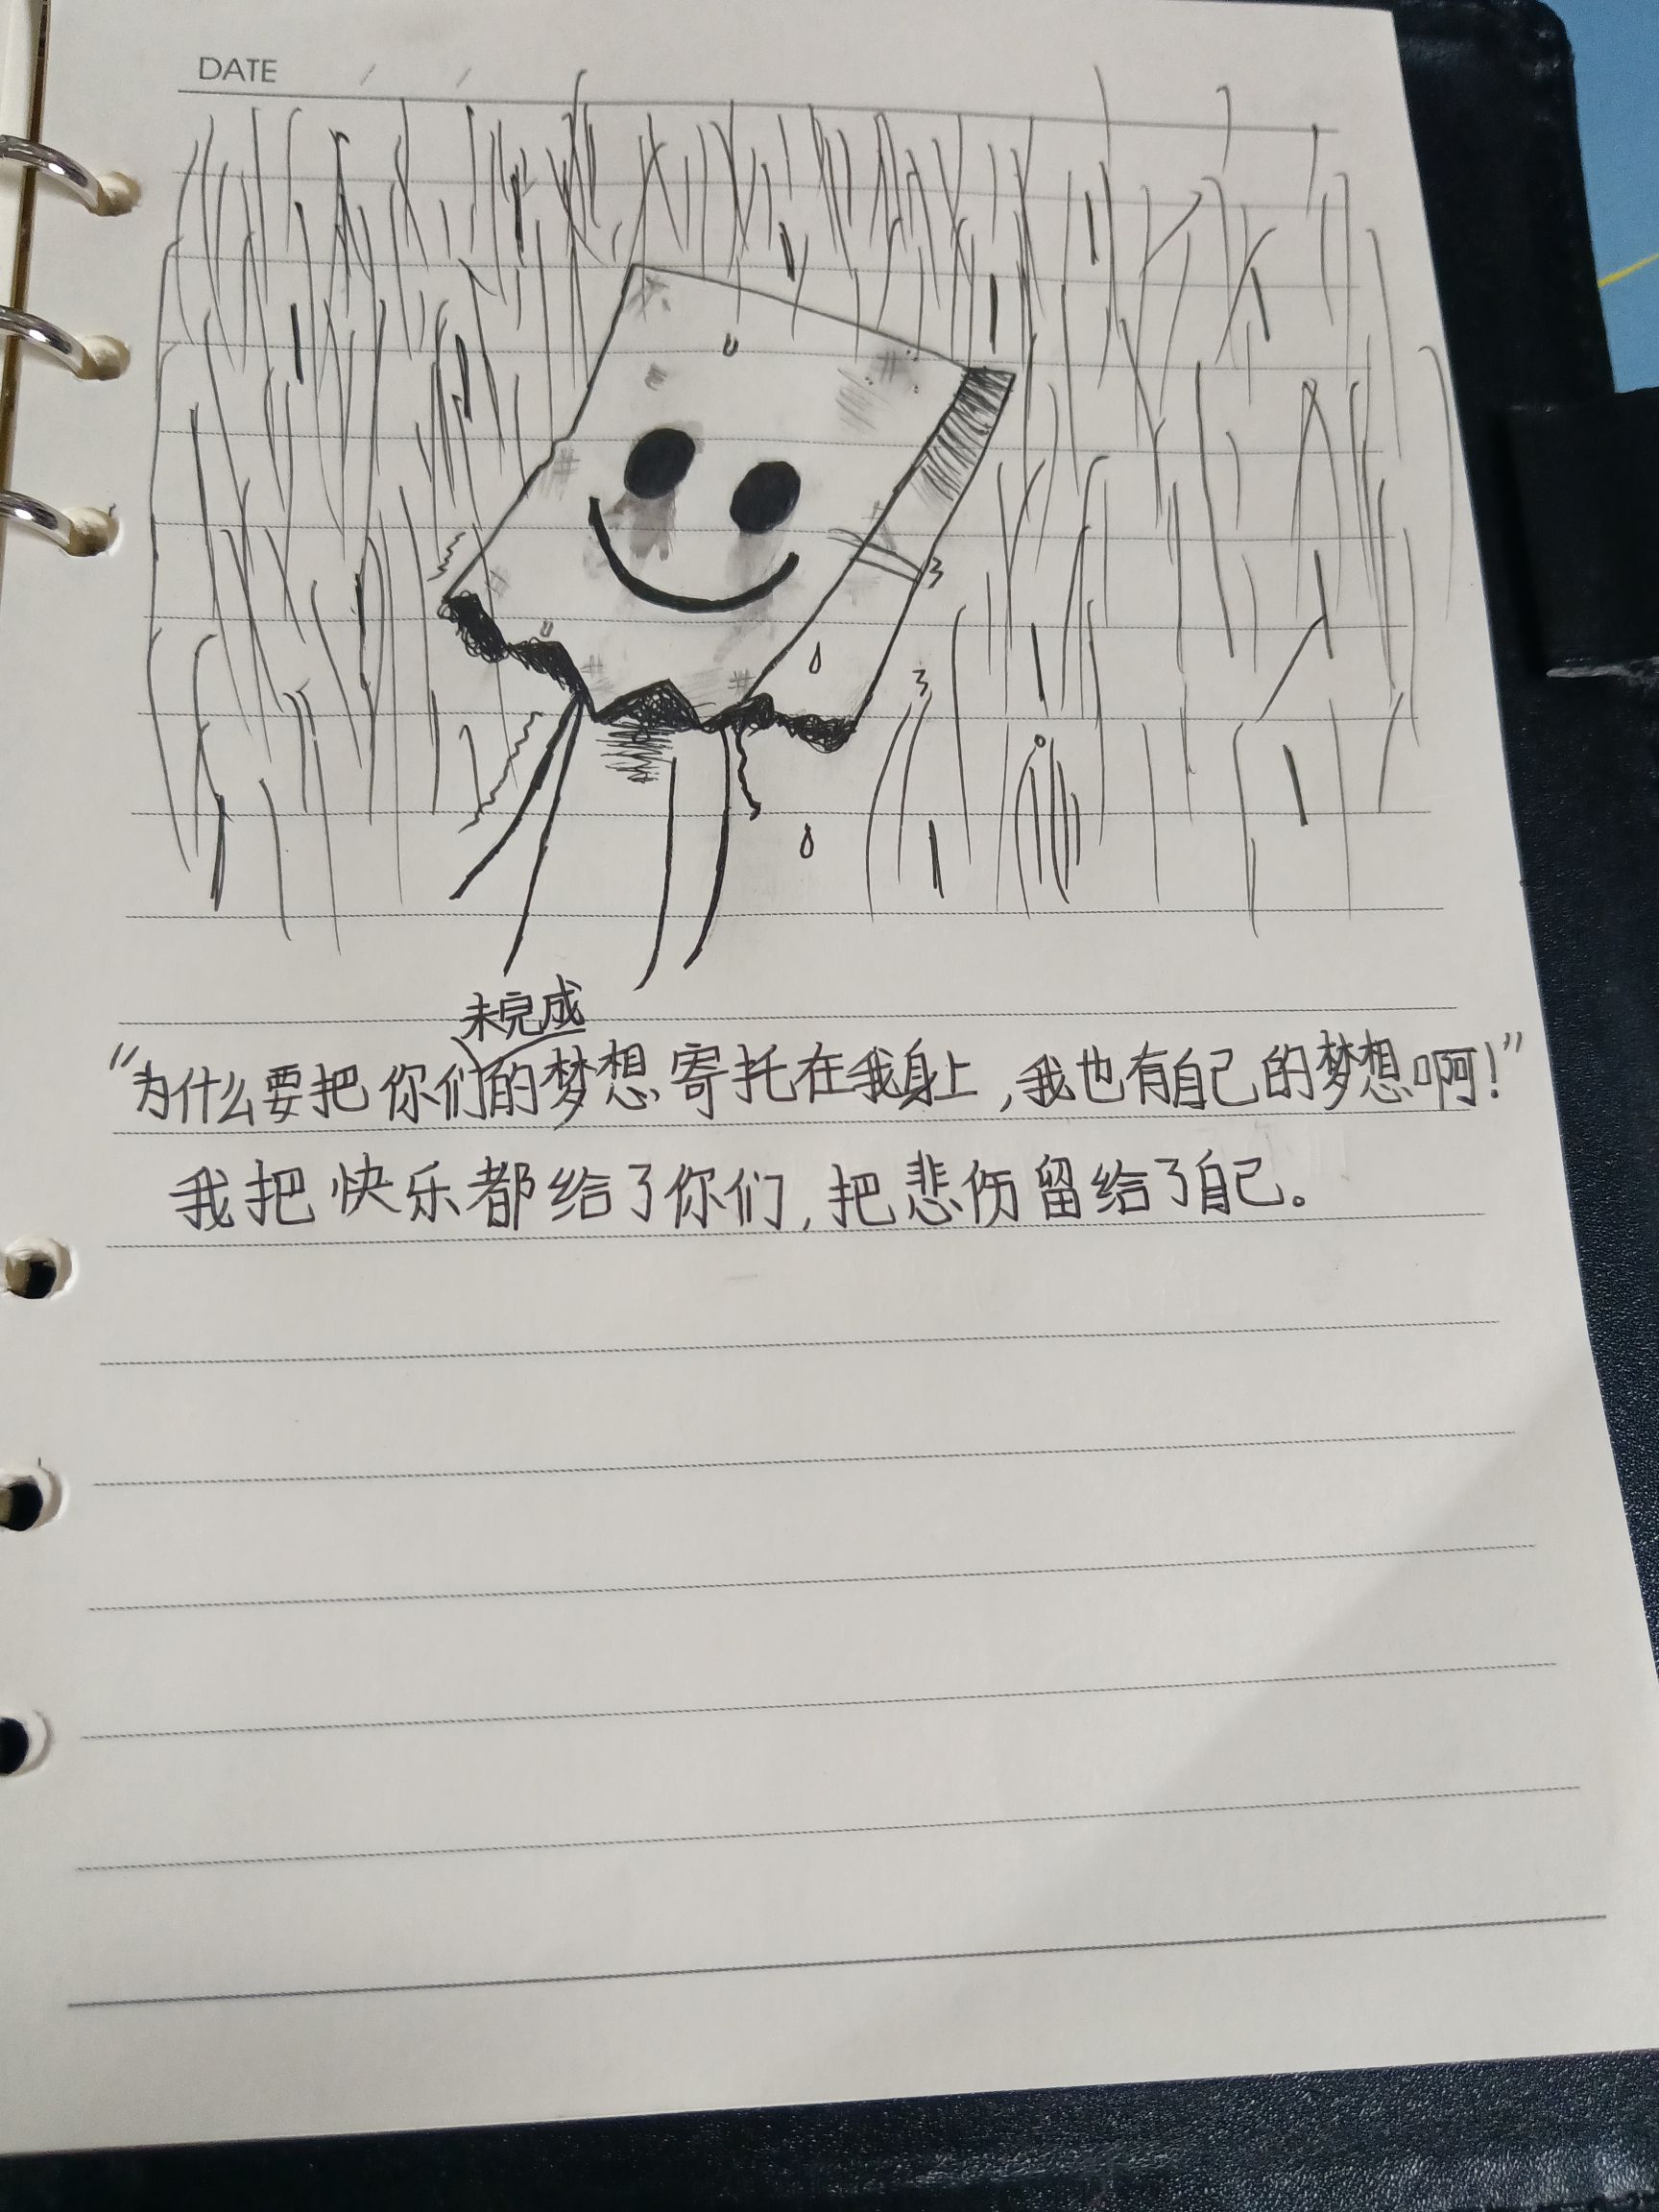 DATE / /
未完成
"为什么要把你们的梦想寄托在我身上，我也有自己的梦想啊！"
我把快乐都给了你们，把悲伤留给了自己。